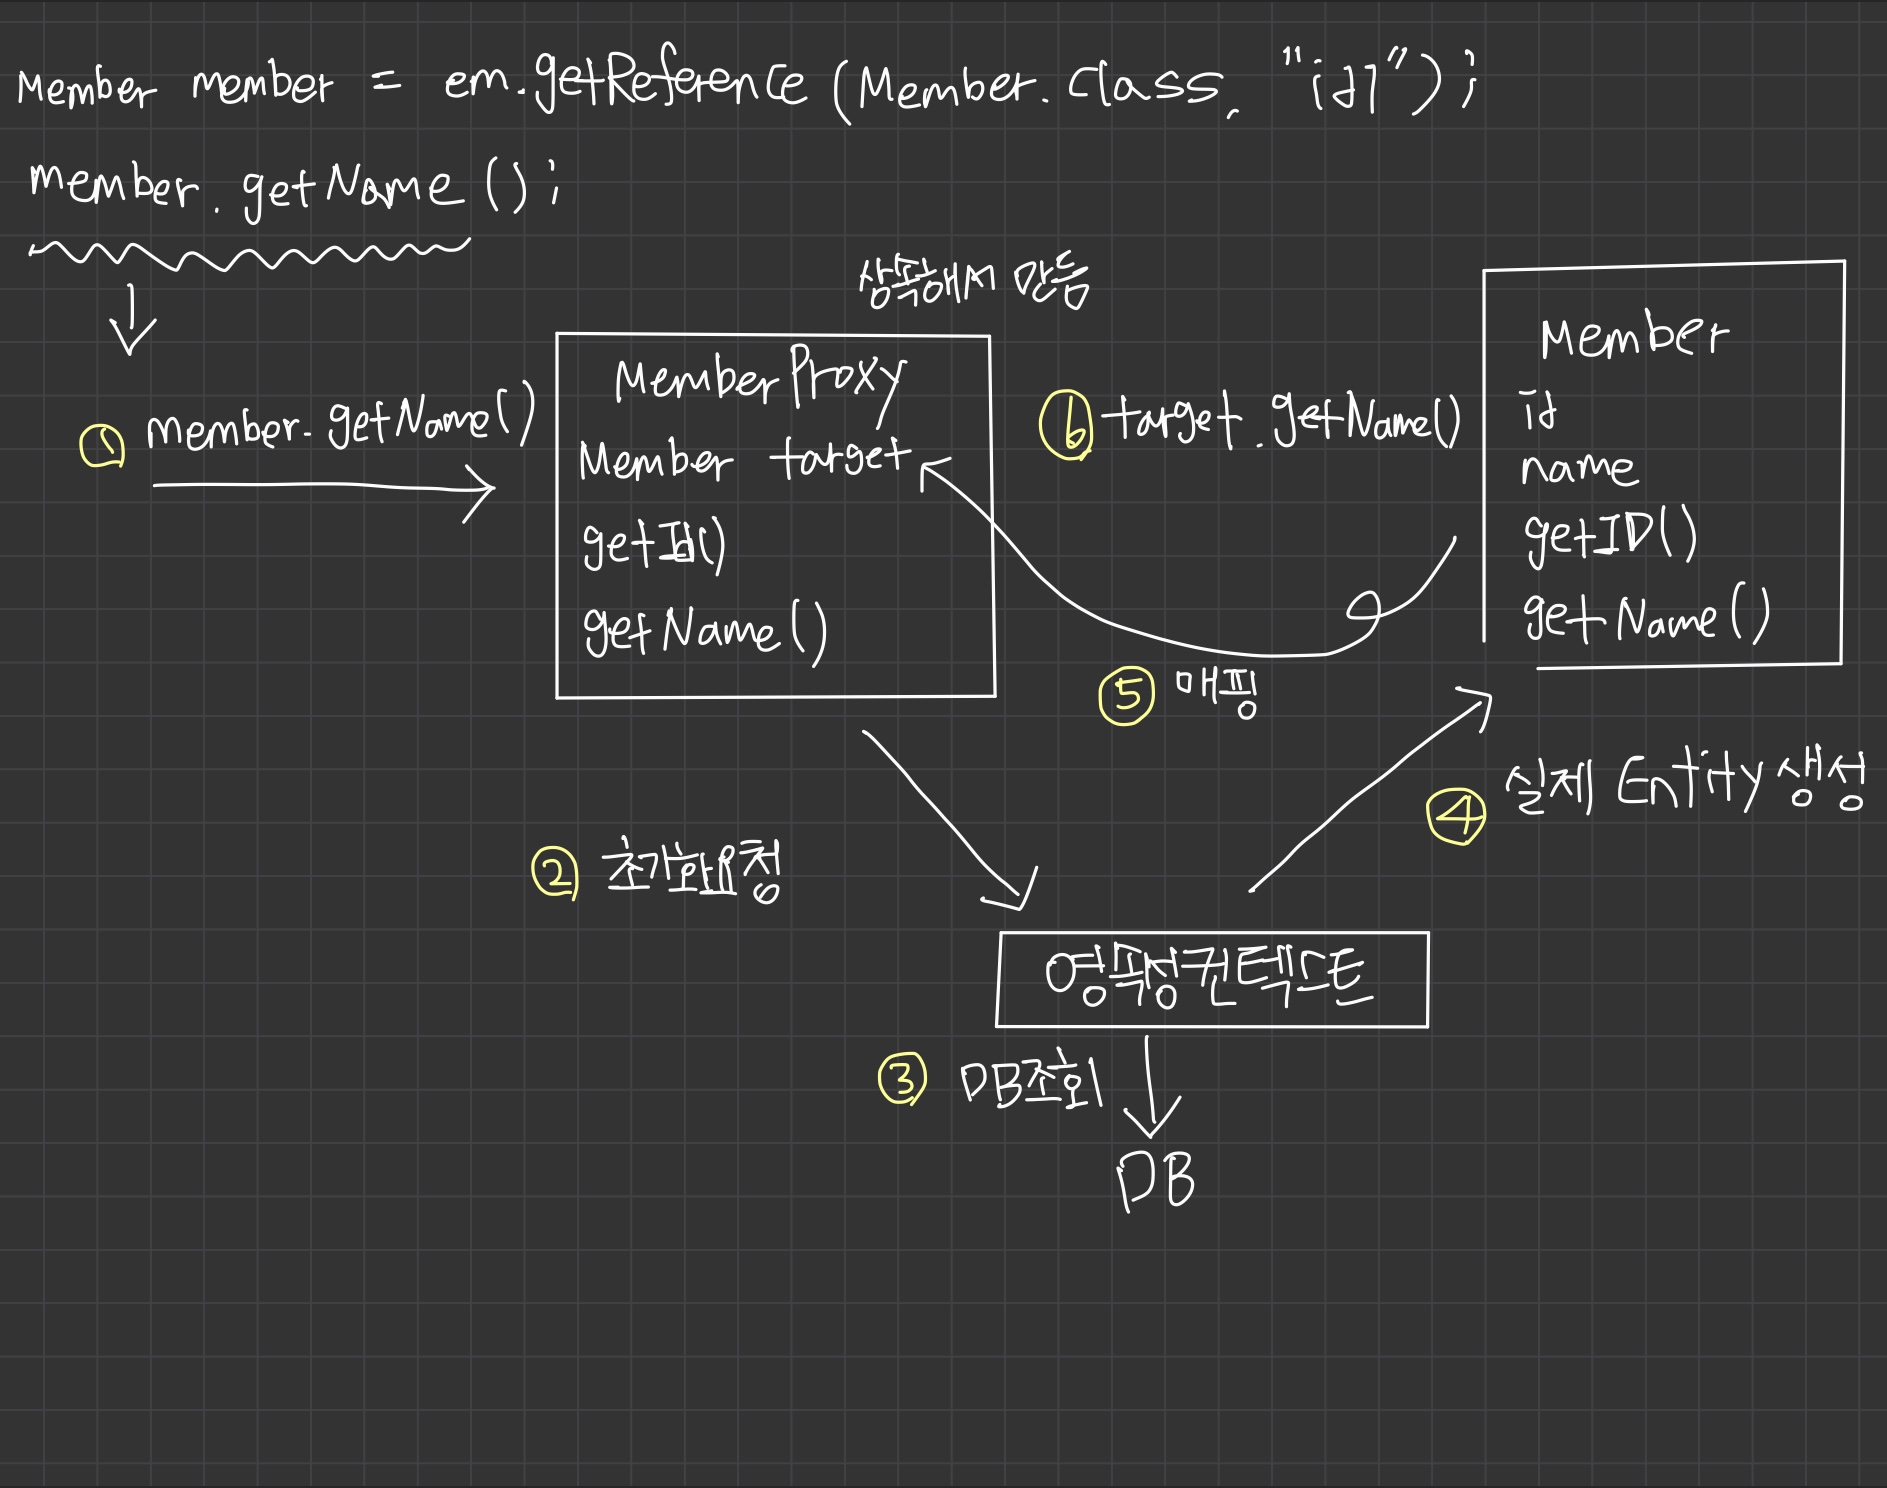 Member member = em.getReference(Member.class, "id1");
member.getName();
상속해서 만듬
① member.getName()
MemberProxy
Member target
getId()
getName()
⑥ target.getName()
Member
id
name
getID()
getName()
⑤ 매핑
④ 실제 Entity 생성
② 초기화요청
영속성컨텍스트
③ DB조회
DB